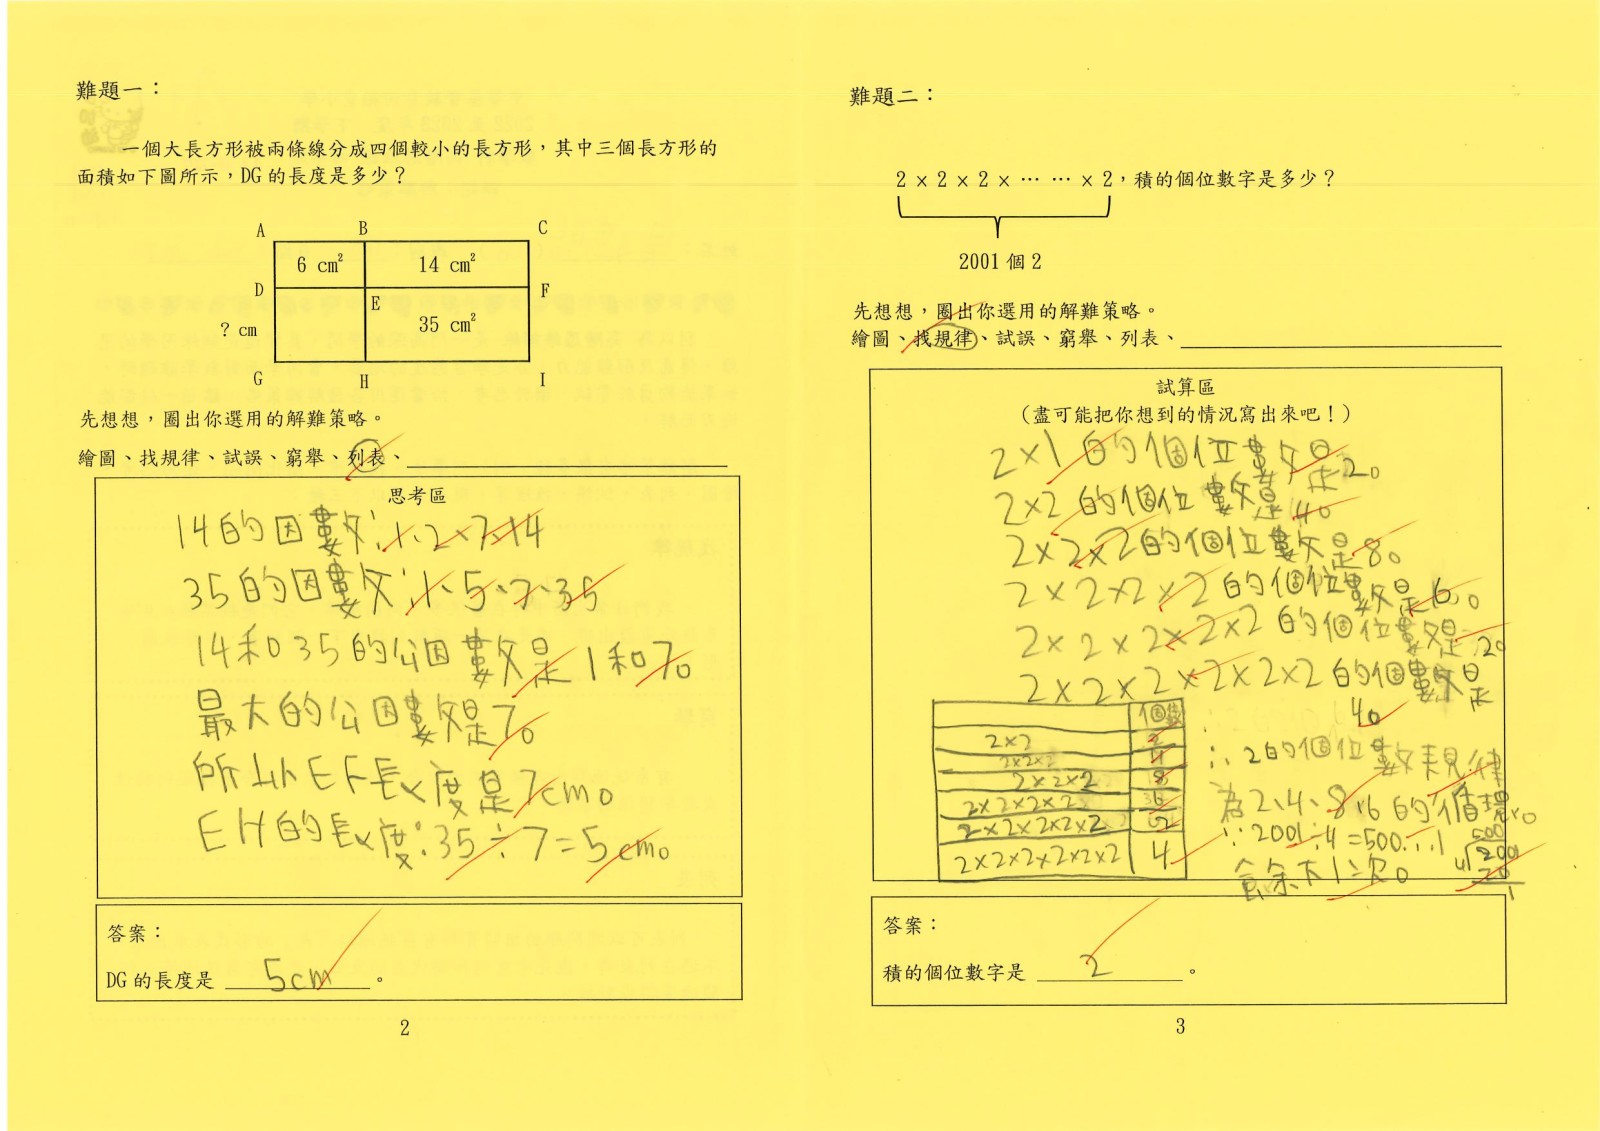 難題一：
一個大長方形被兩條線分成四個較小的長方形，其中三個長方形的
面積如下圖所示，DG 的長度是多少？
A B C
6 cm² 14 cm²
D E F
? cm 35 cm²
G H I
先想想，圈出你選用的解難策略。
繪圖、找規律、試誤、窮舉、列表、
思考區
14的因數：1、2、7、14
35的因數：1、5、7、35
14和35的公因數是1和7。
最大的公因數是7。
所以EF長度是7cm。
EH的長度：35÷7=5cm。
答案：
DG 的長度是 5cm 。
2
難題二：
2 × 2 × 2 × … … × 2，積的個位數字是多少？
2001 個 2
先想想，圈出你選用的解難策略。
繪圖、找規律、試誤、窮舉、列表、
試算區
（盡可能把你想到的情況寫出來吧！）
2×1的個位數是2。
2×2的個位數是4。
2×2×2的個位數是8。
2×2×2×2的個位數是6。
2×2×2×2×2的個位數是2。
2×2×2×2×2×2的個位數是
4。
個數
2×2
2×2×2
2×2×2 8
2×2×2×2
2×2×2×2×2
2×2×2×2×2×2 4
∴2的個位數規律
為2、4、8、6的循環。
∵2001÷4=500…1
餘下1次。
500
4 2001
20
1
答案：
積的個位數字是 2 。
3